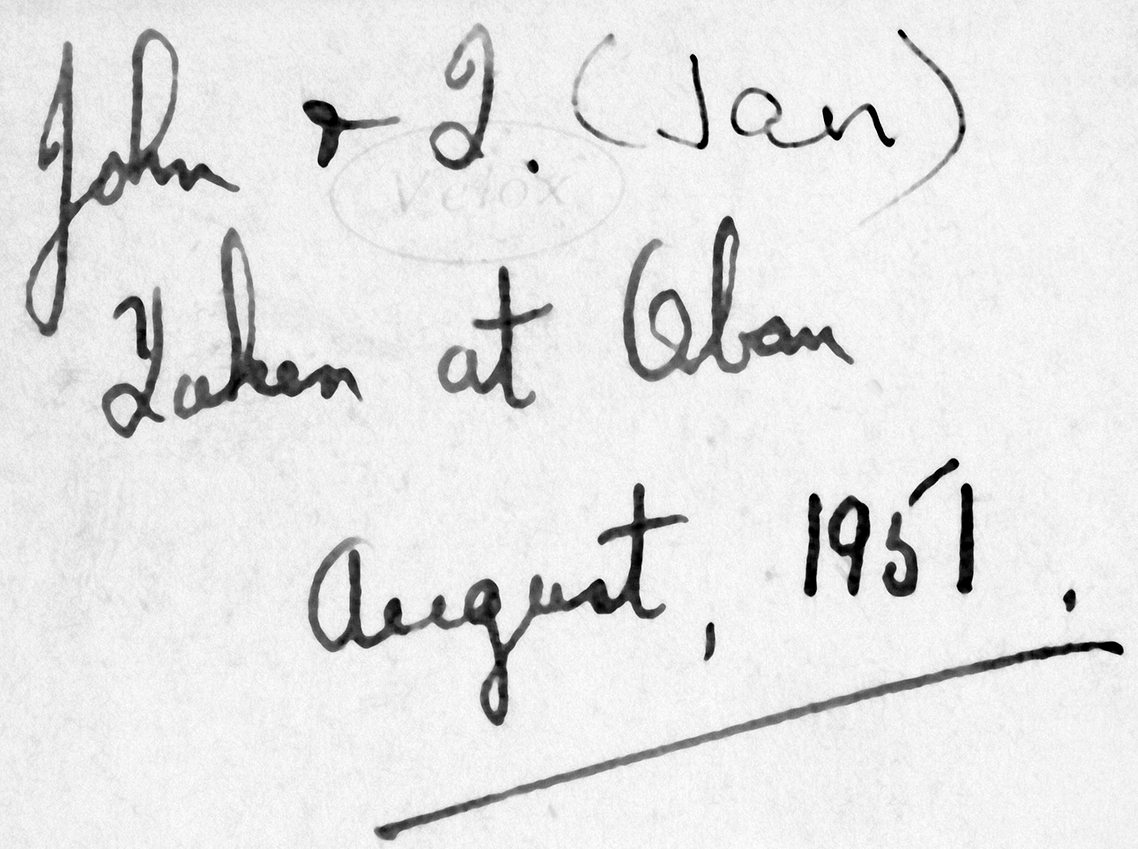 John & I. (Jan)
Velox
Taken at Oban
August, 1951.